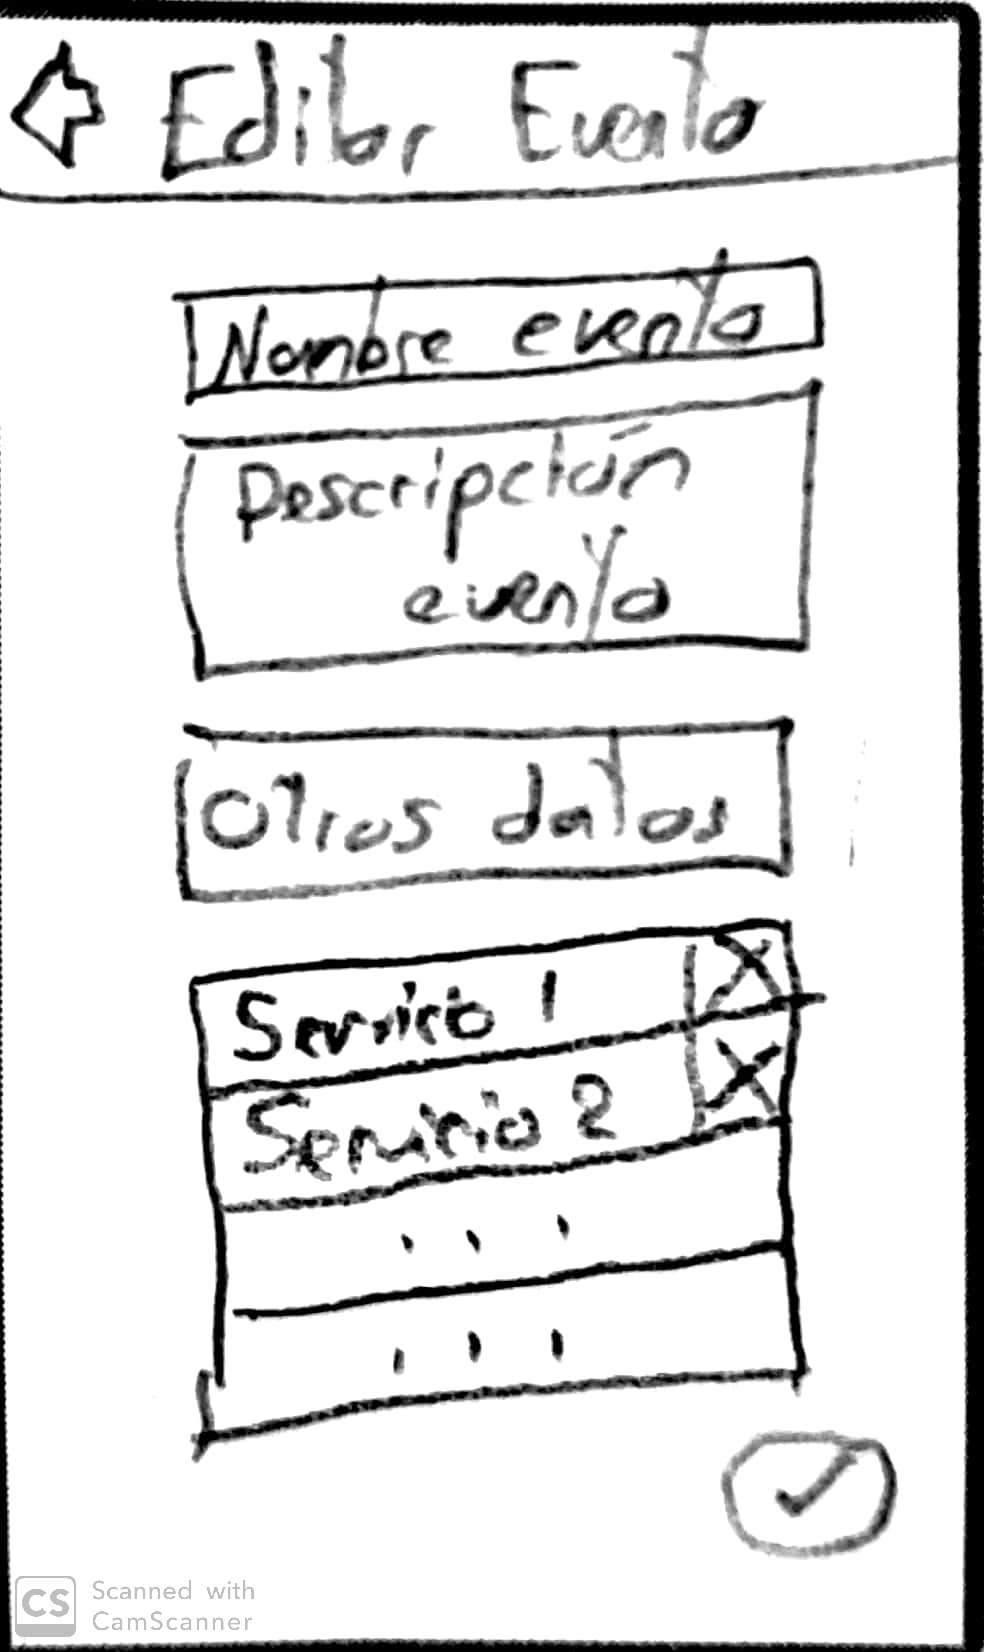 Editar Evento
Nombre evento
Descripción
evento
Otros datos
Servicio 1
Servicio 2
...
...
CS Scanned with
CamScanner